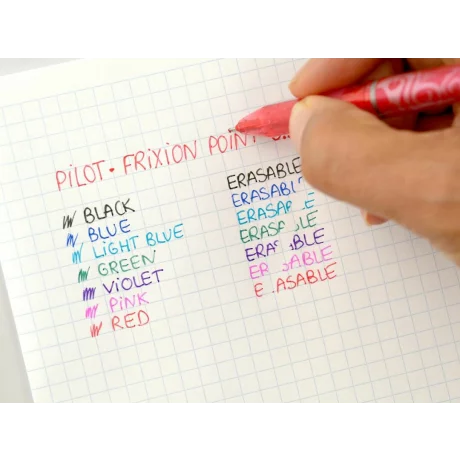 PILOT • FRIXION POINT
BLACK ERASABLE
BLUE ERASABL
LIGHT BLUE ERASAB
GREEN ERASABLE
VIOLET ERASABLE
PINK ERASABLE
RED ERASABLE